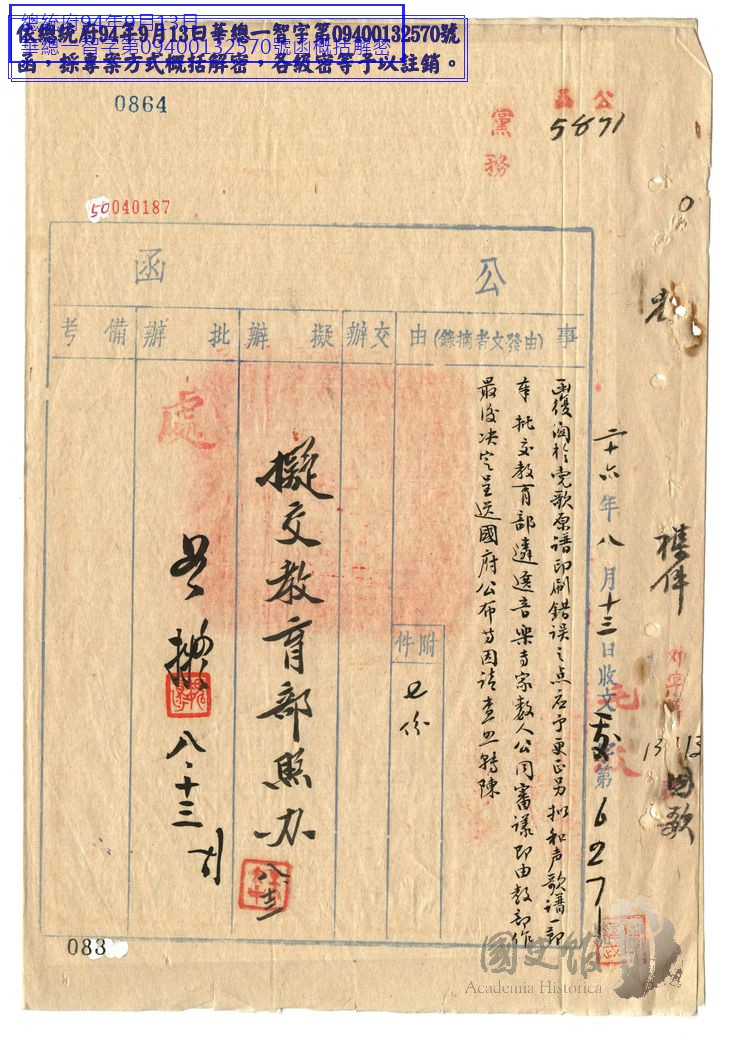 總統府94年9月13日
華總一智字第09400132570號函概括解密
依總統府94年9月13日華總一智字第09400132570號
函,採專案方式概括解密,各級密等予以註銷。
0864
公
5871
黨務
50040187
公函
事由(由發文者摘錄)
交辦
擬辦
批辦
備考
函復關於党歌原譜印刷錯誤之点應予更正另拟和声歌譜一節
奉批交教育部遴選音樂專家数人公同審議即由教部作
最後決定呈送國府公布等因請查照轉陳
附件
七份
擬交教育部照办
八.十三
八.十三
處
二十六年八月十三日收文
字第6271
國歌
083
國史館
Academia Historica